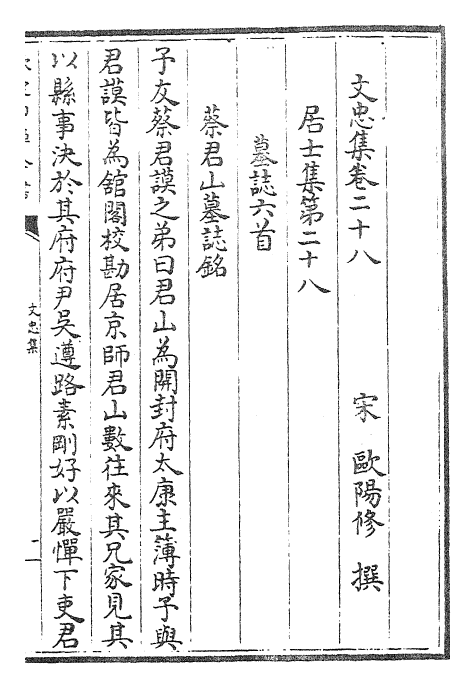 文忠集卷二十八
宋 歐陽修 撰
居士集第二十八
墓誌六首
蔡君山墓誌銘
予友蔡君謨之弟曰君山為開封府太康主簿時予與
君謨皆為舘閣校勘居京師君山數往來其兄家見其
以縣事決於其府府尹吳遵路素剛好以嚴憚下吏君
文忠集
一